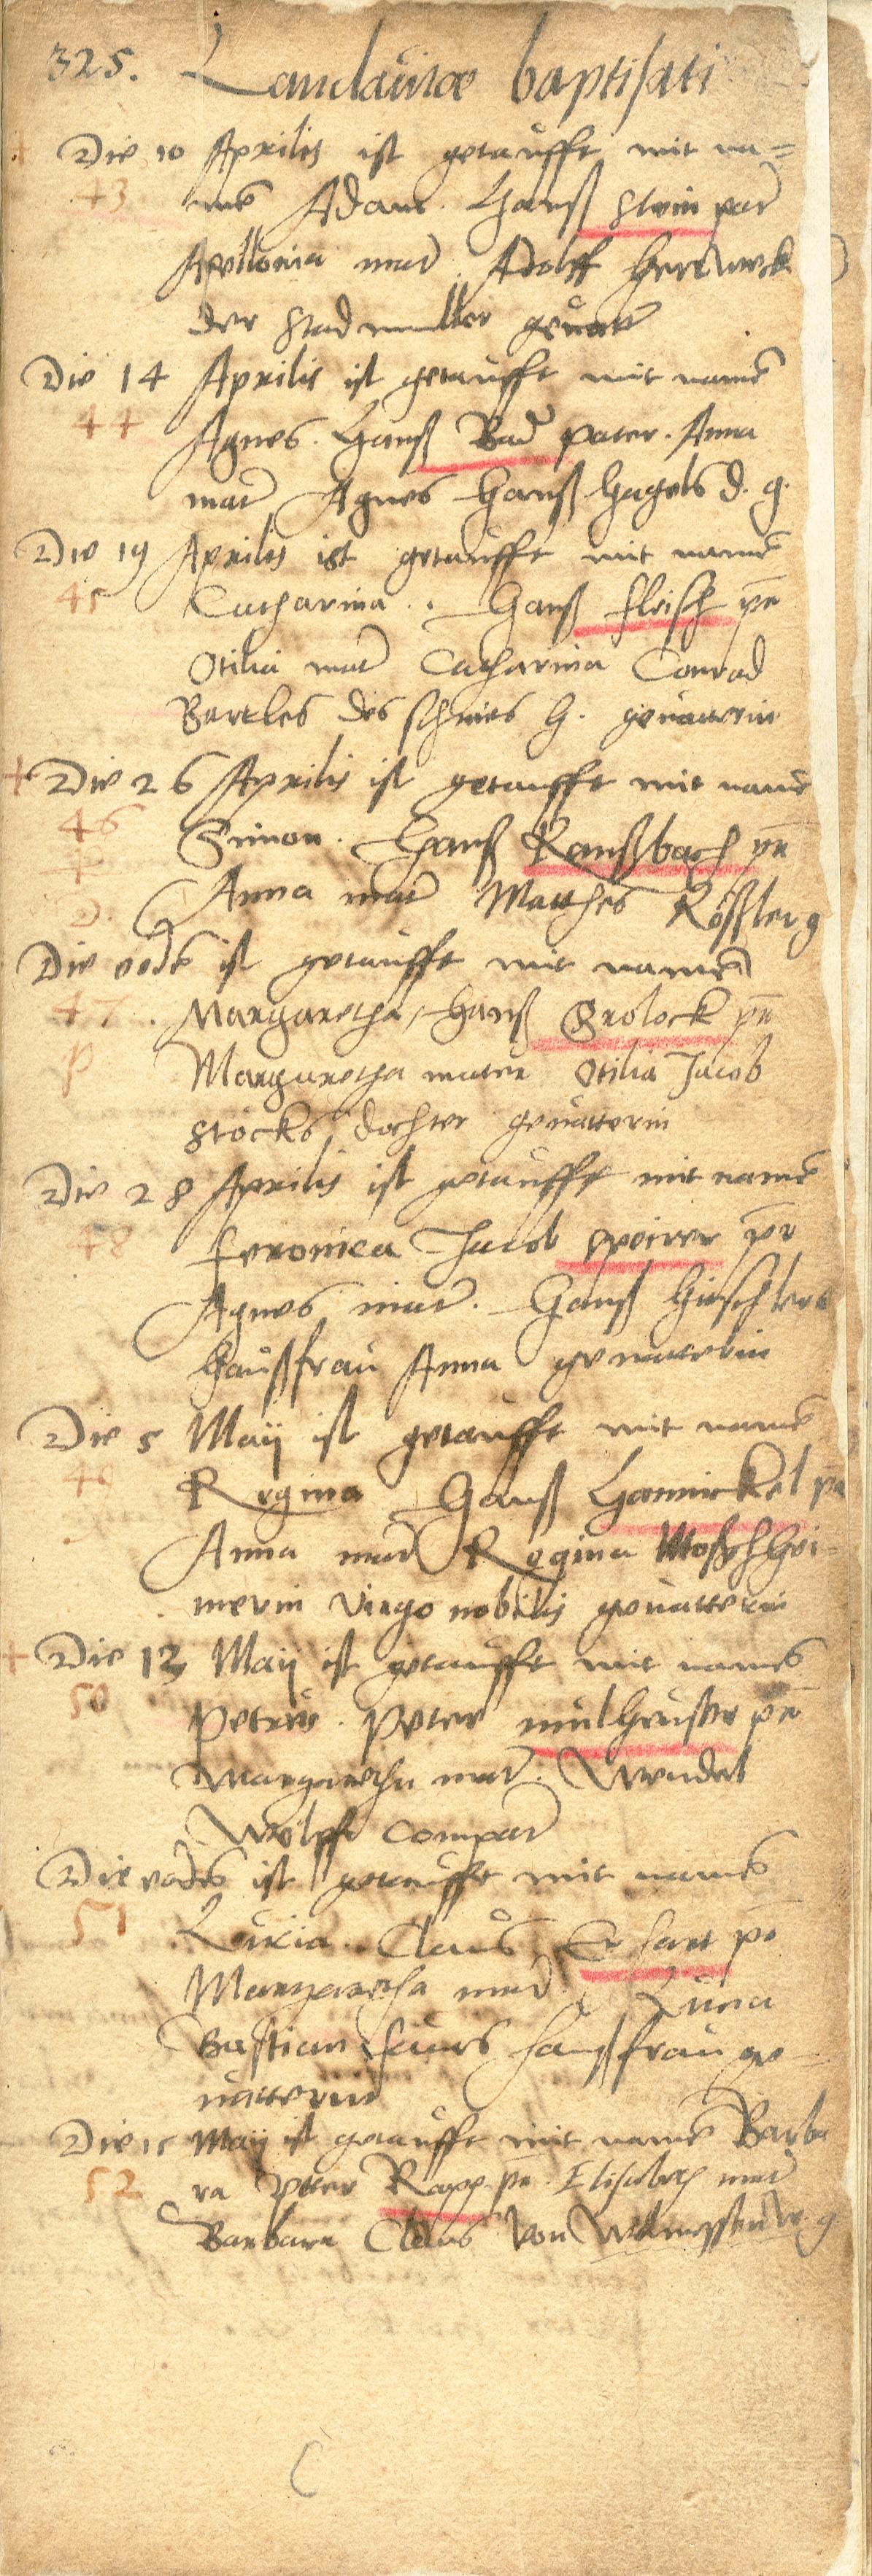 325. Landauiae baptisati
Die 10 Aprilis ist getaufft mit na=
43 mē Adam. Hanß Stein pat̄
Apollonia mat̄ Adolff
der Stadmuller geuatt̄
Die 14 Aprilis ist getaufft mit namē
44 Agnes. Hanß Bad̄ pater. Anna
mat̄ Agnes Hanß Hagels d. g.
Die 19 Aprilis ist getaufft mit namē
45 Catharina. Hanß fleisch pr̄
Otilia mat̄ Catharina Conrad
Bartles des H. geuatterin
+ Die 26 Aprilis ist getaufft mit namē
46 Simon. Hanß Ranßbach pr̄
Anna mat̄ Matthes Rößler g
Die eodē ist getaufft mit namē
47 Margaretha, Hanß Grolock pr̄
p Margaretha mater Otilia Jacob
Stöcks dochter geuatterin
Die 28 Aprilis ist getaufft mit namē
48 feronica Jacob speirer pr̄
Agnes mat̄. Hanß Hirschlers
haußfrau Anna geuatterin
Die 5 Maij ist getaufft mit namē
49 Regina Hanß Hannickel pr̄
Anna mat̄ Regina
merin virgo nobilis geuatterin
+ Die 13 Maij ist getaufft mit names
50 Petrus. Peter mülheußer pr̄
Margaretha mat̄. Wendel
Wolff compat̄
Die eodē ist getaufft mit names
51 Lucia. Claus Erhart pr̄
Margaretha mat̄. Lucia
Bastian haußfrau ge-
uatterin
Die 15 Maij ist getaufft mit namē Barba
52 ra Peter Rapp pr̄. Elisabeth mat̄
Barbara Claus von g